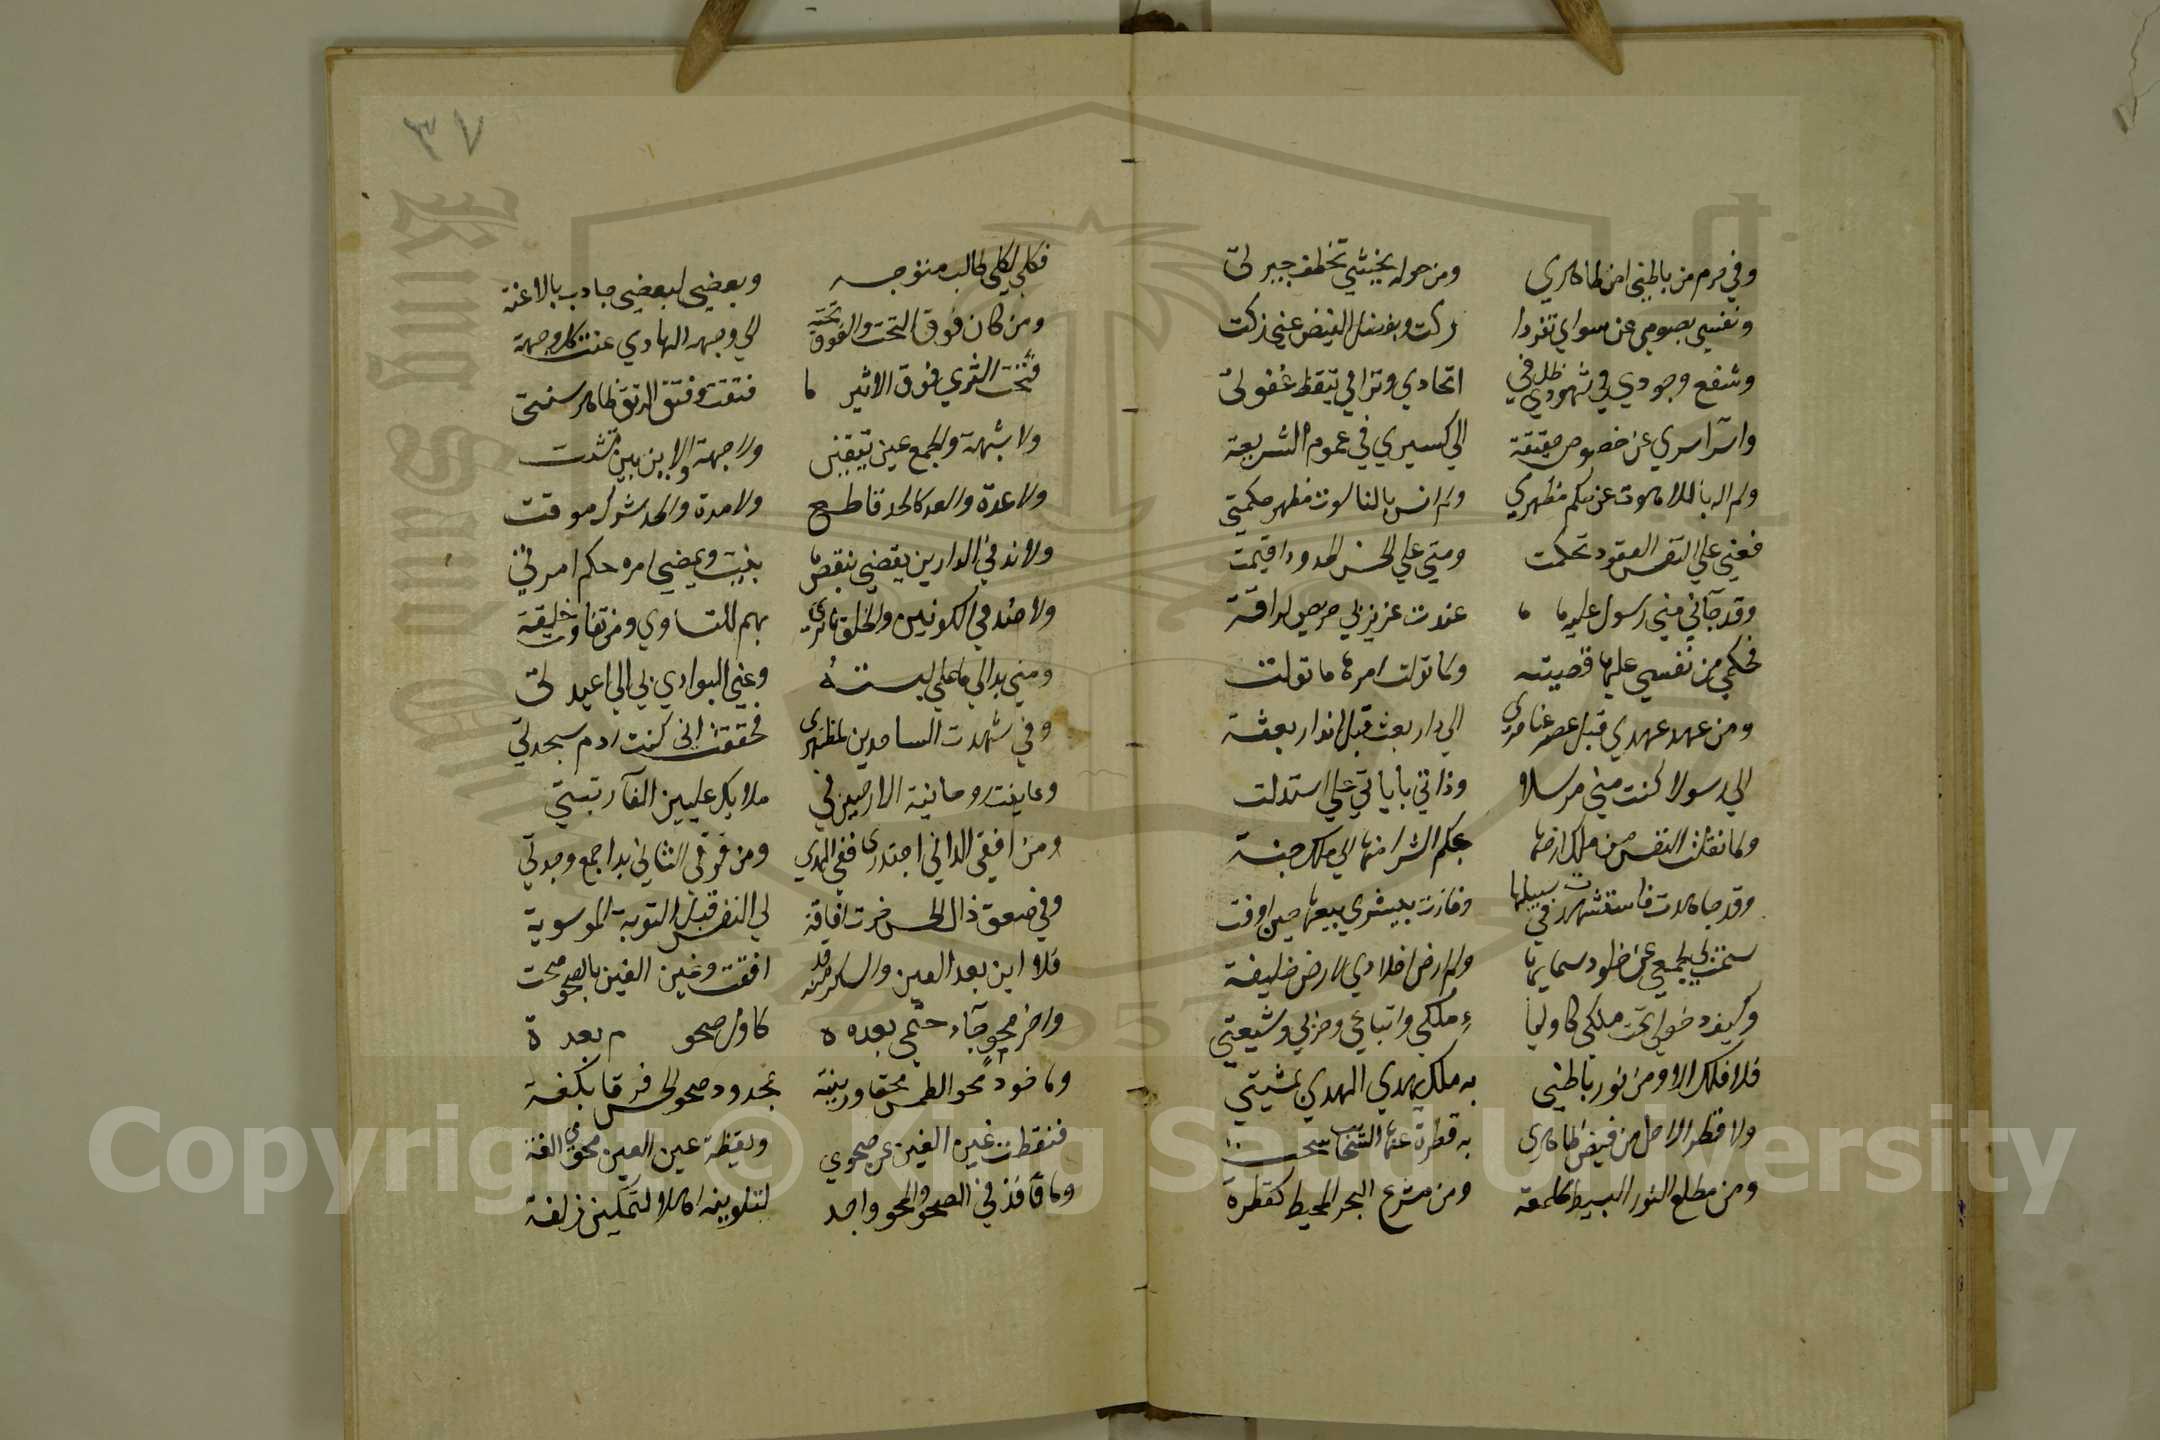 وفي حرم من باطني امن ظاهري ومن حوله يخشي تخطف جيرتي
ونفسي بصومي عن سواي تفردا زكت وبفضل الفيض عني زكت
وشفع وجودي في شهودي ظل في اتحادي وترا في تيقظ غفوتي
واسراسري عن خصوص حقيقة الي كسيري في عموم الشريعة
ولم اله باللاهوت عن حكم مظهري ولم انس بالناسوت مظهر حكمتي
فعني علي النفس العقود تحكمت ومني علي الحس الحدود اقيمت
وقد جآني مني رسول عليه ما عنت عزيز بي حريص لرافة
فحكمي من نفسي عليها قضيته ولما تولت امرها ما تولت
ومن عهد عهدي قبل عصر عناصري الي دار بعث قبل انذار بعثة
الي رسولا كنت مني مرسلا وذاتي باياتي علي استدلت
ولما نقلت النفس من ملك ارضها بحكم الشرا منها الي ملك جنة
وقد جاهدت فاستشهدت في سبيلها وفازت ببشري بيعها حين اوفت
سمت بي لجمعي عن خلود سمايها ولم ارض اخلادي لارض خليفة
وكيف دخولي تحت ملكي كاوليا ء ملكي واتباعي وحزبي وشيعتي
فلا فلك الا ومن نور باطني به ملك يهدي الهدي بمشيتي
ولا قطر الا حل من فيض ظاهري به قطرة عنها السحايب سحت
ومن مطلع النور البسيط كلمعة ومن مشرع البحر المحيط كقطرة
٣٧
فكلي لكلي طالب متوجه وبعضي لبعضي جاذب بالاعنة
ومن كان فوق التحت والفوق تحته الي وجهه الهادي عنت كل وجهة
فتحت الثري فوق الاثير لما فتقت وفتق الرتق ظاهر سنتي
ولا شبهة والجمع عين تيقن ولا جهة والاين بين تشتت
ولا عدة والعد كالحد قاطع ولا مدة والحد شرك موقت
ولا ند في الدارين يقضي بنقض ما بنيت ويمضي امره حكم امرتي
ولا ضد في الكونين والخلق ما تري بهم للتساوي من تفاوت خليقة
ومني بدا لي ما علي لبسته وعني البوادي بي الي اعيدت
وفي شهدت الساجدين لمظهري فحققت اني كنت ادم سجدتي
وعاينت روحانية الارضين في ملايك عليين اكفآ رتبتي
ومن افقي الداني اجتدي رفقي الهدي ومن فرقي الثاني بدا جمع وحدتي
وفي صعق دك الحس خرت افاقة لي النفس قبل التوبة الموسوية
فلا اين بعد العين والسكر منه قد افقت وعين الغين بالصحو صحت
واخر محو جآء ختمي بعده كاول صحو م بعدة
وماخوذ محو الطمس محقا وزنته بمحدود صحو الحس فرقا بكفة
فنقطة غين الغين عن صحوي ويقظة عين العين محوي الغت
وما فاقد في الصحو والمحو واجد لتلوينه اهلا لتمكين زلفة
Copyright © King Saud University
King Saud University
1957